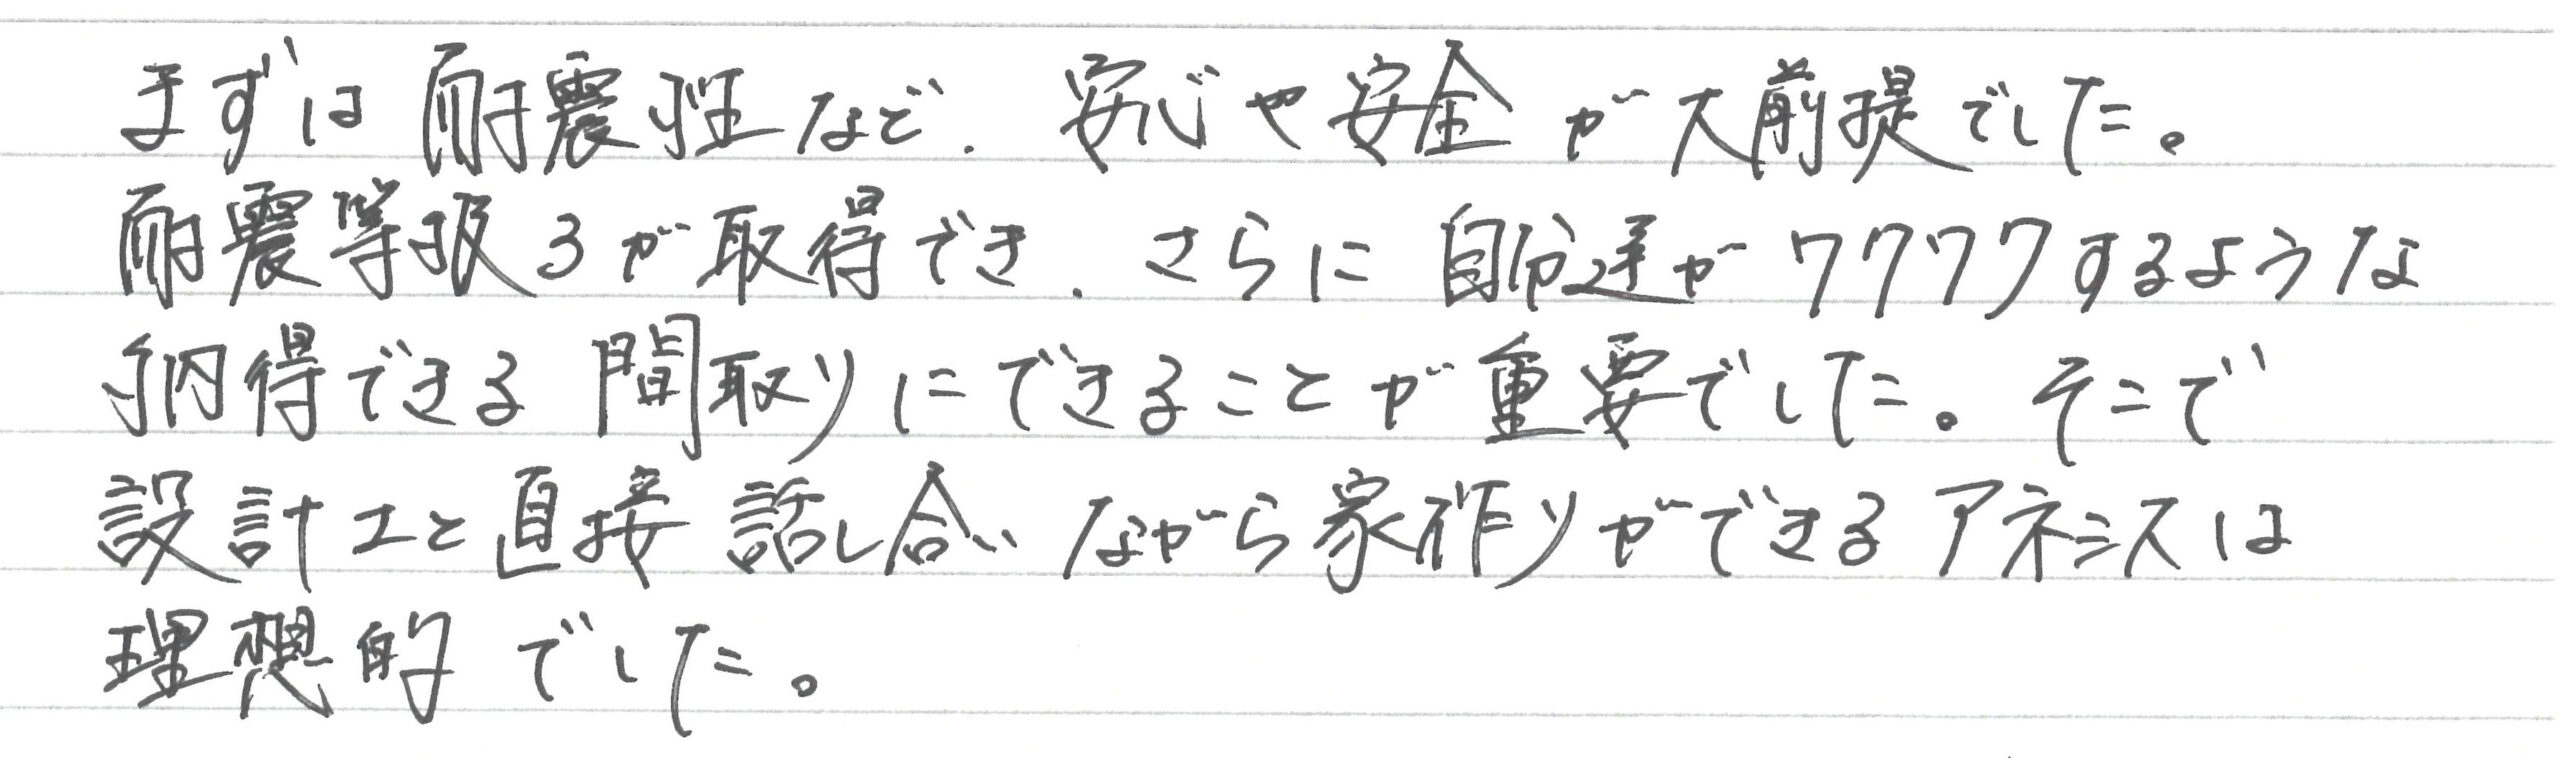 まずは耐震性など、安心や安全が大前提でした。
耐震等級3が取得でき、さらに自分達がワクワクするような
納得できる間取りにできることが重要でした。そこで
設計士と直接話し合いながら家作りができるアネシスは
理想的でした。